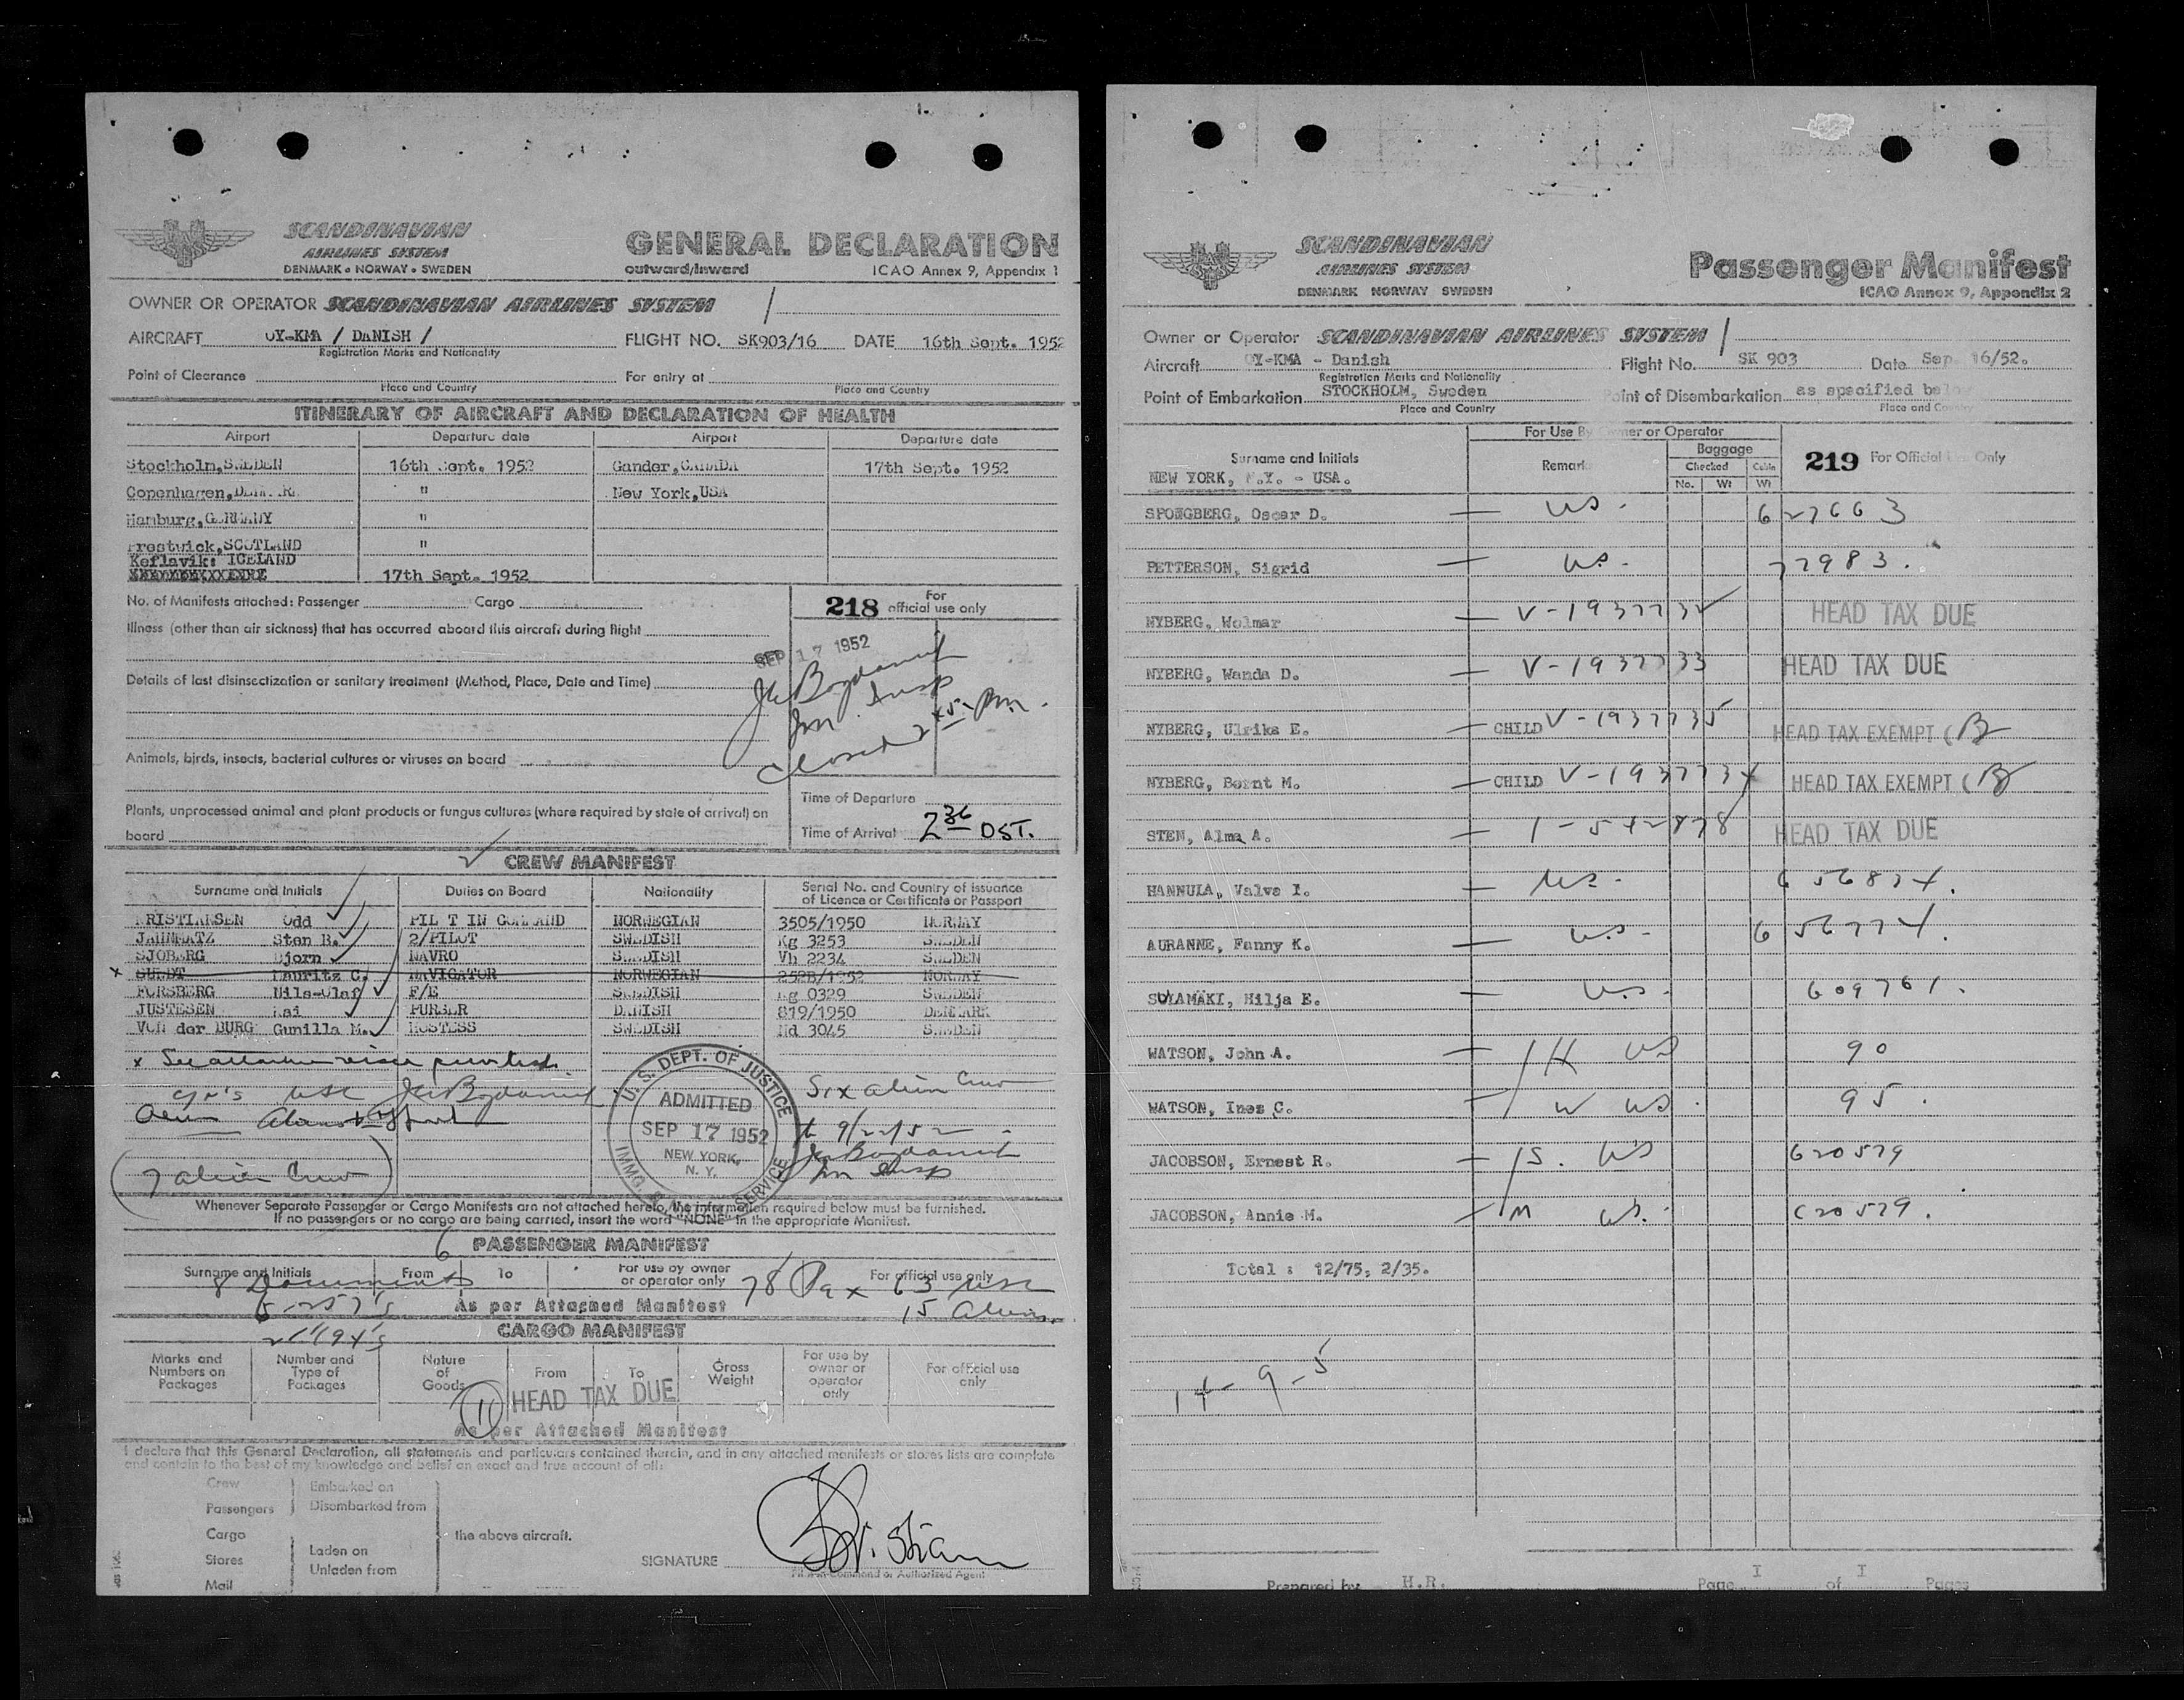 SCANDINAVIAN
AIRLINES SYSTEM
DENMARK • NORWAY • SWEDEN
GENERAL DECLARATION
outward/inward
ICAO Annex 9, Appendix 1
OWNER OR OPERATOR SCANDINAVIAN AIRLINES SYSTEM /
AIRCRAFT OY-KMA / DANISH / FLIGHT NO. SK903/16 DATE 16th Sept. 1952
Registration Marks and Nationality
Point of Clearance For entry at
Place and Country Place and Country
ITINERARY OF AIRCRAFT AND DECLARATION OF HEALTH
Airport Departure date Airport Departure date
Stockholm, SWEDEN 16th Sept. 1952 Gander, CANADA 17th Sept. 1952
Copenhagen, " New York, USA
Hamburg, GERMANY "
Prestwick, SCOTLAND "
Keflavik: ICELAND
17th Sept. 1952
No. of Manifests attached: Passenger Cargo
218 For official use only
Illness (other than air sickness) that has occurred aboard this aircraft during flight
SEP 17 1952
Details of last disinsectization or sanitary treatment (Method, Place, Date and Time)
Imm. Insp
Closed 2 45 Pm.
Animals, birds, insects, bacterial cultures or viruses on board
Time of Departure
Plants, unprocessed animal and plant products or fungus cultures (where required by state of arrival) on
board
Time of Arrival 2 36 DST.
CREW MANIFEST
Surname and Initials Duties on Board Nationality Serial No. and Country of issuance
of Licence or Certificate or Passport
KRISTIANSEN Odd PIL T IN COMMAND NORWEGIAN 3505/1950 NORWAY
Sten B. 2/PILOT SWEDISH Kg 3253 SWEDEN
SJOBERG Bjorn NAVRO SWEDISH Vh 2234 SWEDEN
x Mauritz C. NAVIGATOR NORWEGIAN 252B/1952 NORWAY
FORSBERG Nils-Olaf F/E SWEDISH Kg 0329 SWEDEN
JUSTESEN Kai PURSER DANISH 819/1950 DENMARK
VON der BURG Gunilla M. HOSTESS SWEDISH Md 3045 SWEDEN
x See
Six alien Crew
U. S. DEPT. OF JUSTICE
ADMITTED
SEP 17 1952
NEW YORK,
N. Y.
IMMG. SERVICE
to 9/22/52
Imm Insp
(7 alien Crew)
Whenever Separate Passenger or Cargo Manifests are not attached hereto, the information required below must be furnished.
If no passengers or no cargo are being carried, insert the word "NONE" in the appropriate Manifest.
6
PASSENGER MANIFEST
Surname and Initials From To For use by owner
or operator only For official use only
8 Documents 78 Pax 63 USC
6-257's As per Attached Manifest 15 Aliens.
CARGO MANIFEST
Marks and
Numbers on
Packages
Number and
Type of
Packages
Nature
of
Goods
From To
Gross
Weight
For use by
owner or
operator
only
For official use
only
(11) HEAD TAX DUE
As per Attached Manifest
I declare that this General Declaration, all statements and particulars contained therein, and in any attached manifests or stores lists are complete
and contain to the best of my knowledge and belief an exact and true account of all:
Crew Embarked on
Passengers Disembarked from
Cargo the above aircraft.
Stores Laden on
Unladen from
Mail
SIGNATURE
Pilot-in-Command or Authorized Agent
SCANDINAVIAN
AIRLINES SYSTEM
DENMARK NORWAY SWEDEN
Passenger Manifest
ICAO Annex 9, Appendix 2
Owner or Operator SCANDINAVIAN AIRLINES SYSTEM /
Aircraft OY-KMA - Danish Flight No. SK 903 Date Sep. 16/52.
Registration Marks and Nationality
Point of Embarkation STOCKHOLM, Sweden Point of Disembarkation as specified below
Place and Country Place and Country
For Use By Owner or Operator
Surname and Initials Remarks Baggage
Checked Cabin
No. Wt Wt
219 For Official Use Only
NEW YORK, N.Y. - USA.
SPONGBERG, Oscar D. — US. 627663
PETTERSON, Sigrid — US. 77983.
NYBERG, Wolmar — V-1937732 HEAD TAX DUE
NYBERG, Wanda D. — V-1937733 HEAD TAX DUE
NYBERG, Ulrika E. — CHILD V-1937735 HEAD TAX EXEMPT (B
NYBERG, Bernt M. — CHILD V-1937734 HEAD TAX EXEMPT (B
STEN, Alma A. — 1-542878 HEAD TAX DUE
HANNULA, Valve I. — US. 656874.
AURANNE, Fanny K. — US. 656774.
SUIAMÄKI, Hilja E. — US. 609761.
WATSON, John A. — H US 90
WATSON, Ines C. — W US. 95.
JACOBSON, Ernest R. — S. US 620579
JACOBSON, Annie M. — M US. 620579.
Total : 12/75, 2/35.
14-9-5
Prepared by H.R. Page I of I Pages